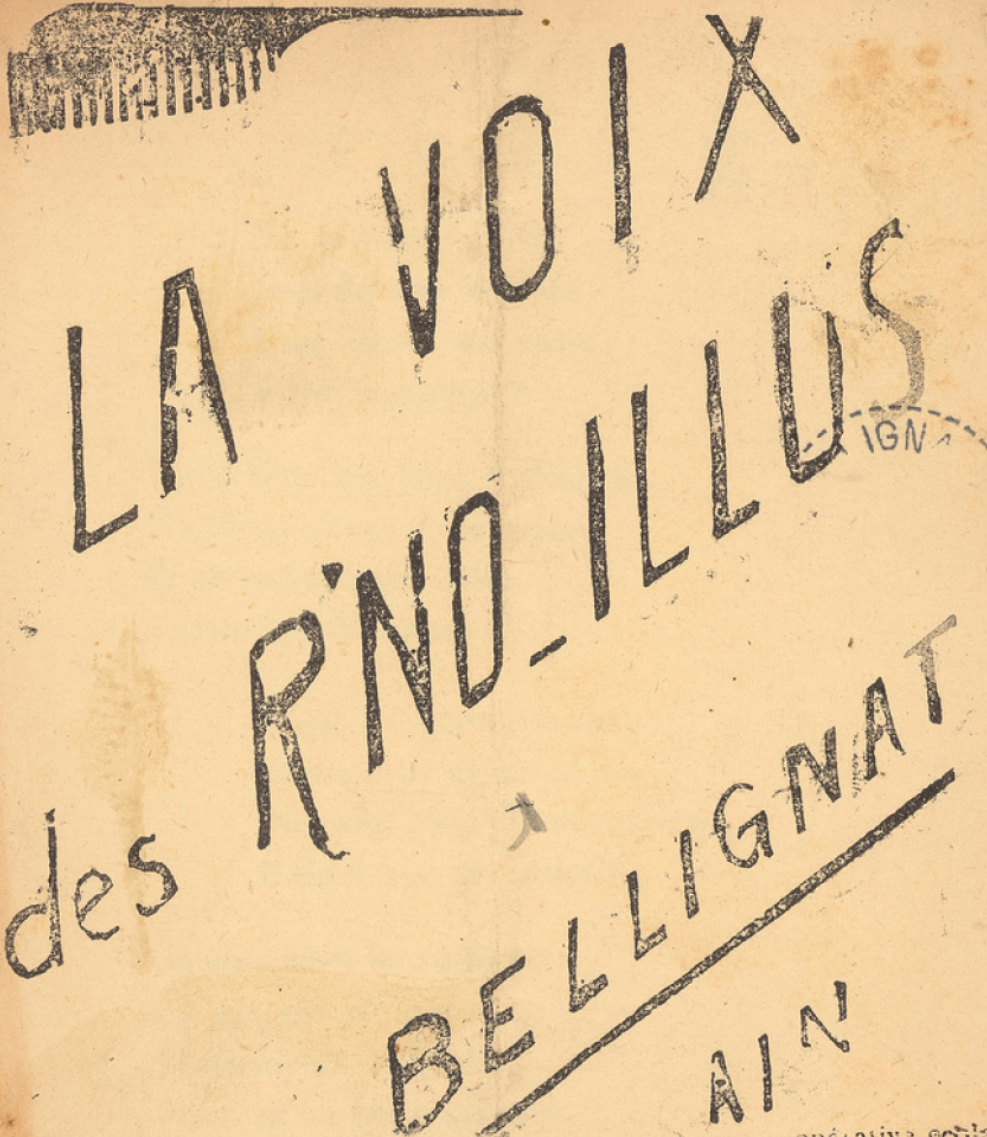 LA VOIX
des R'NO-ILLUS
IGNA
BELLIGNAT
AIN